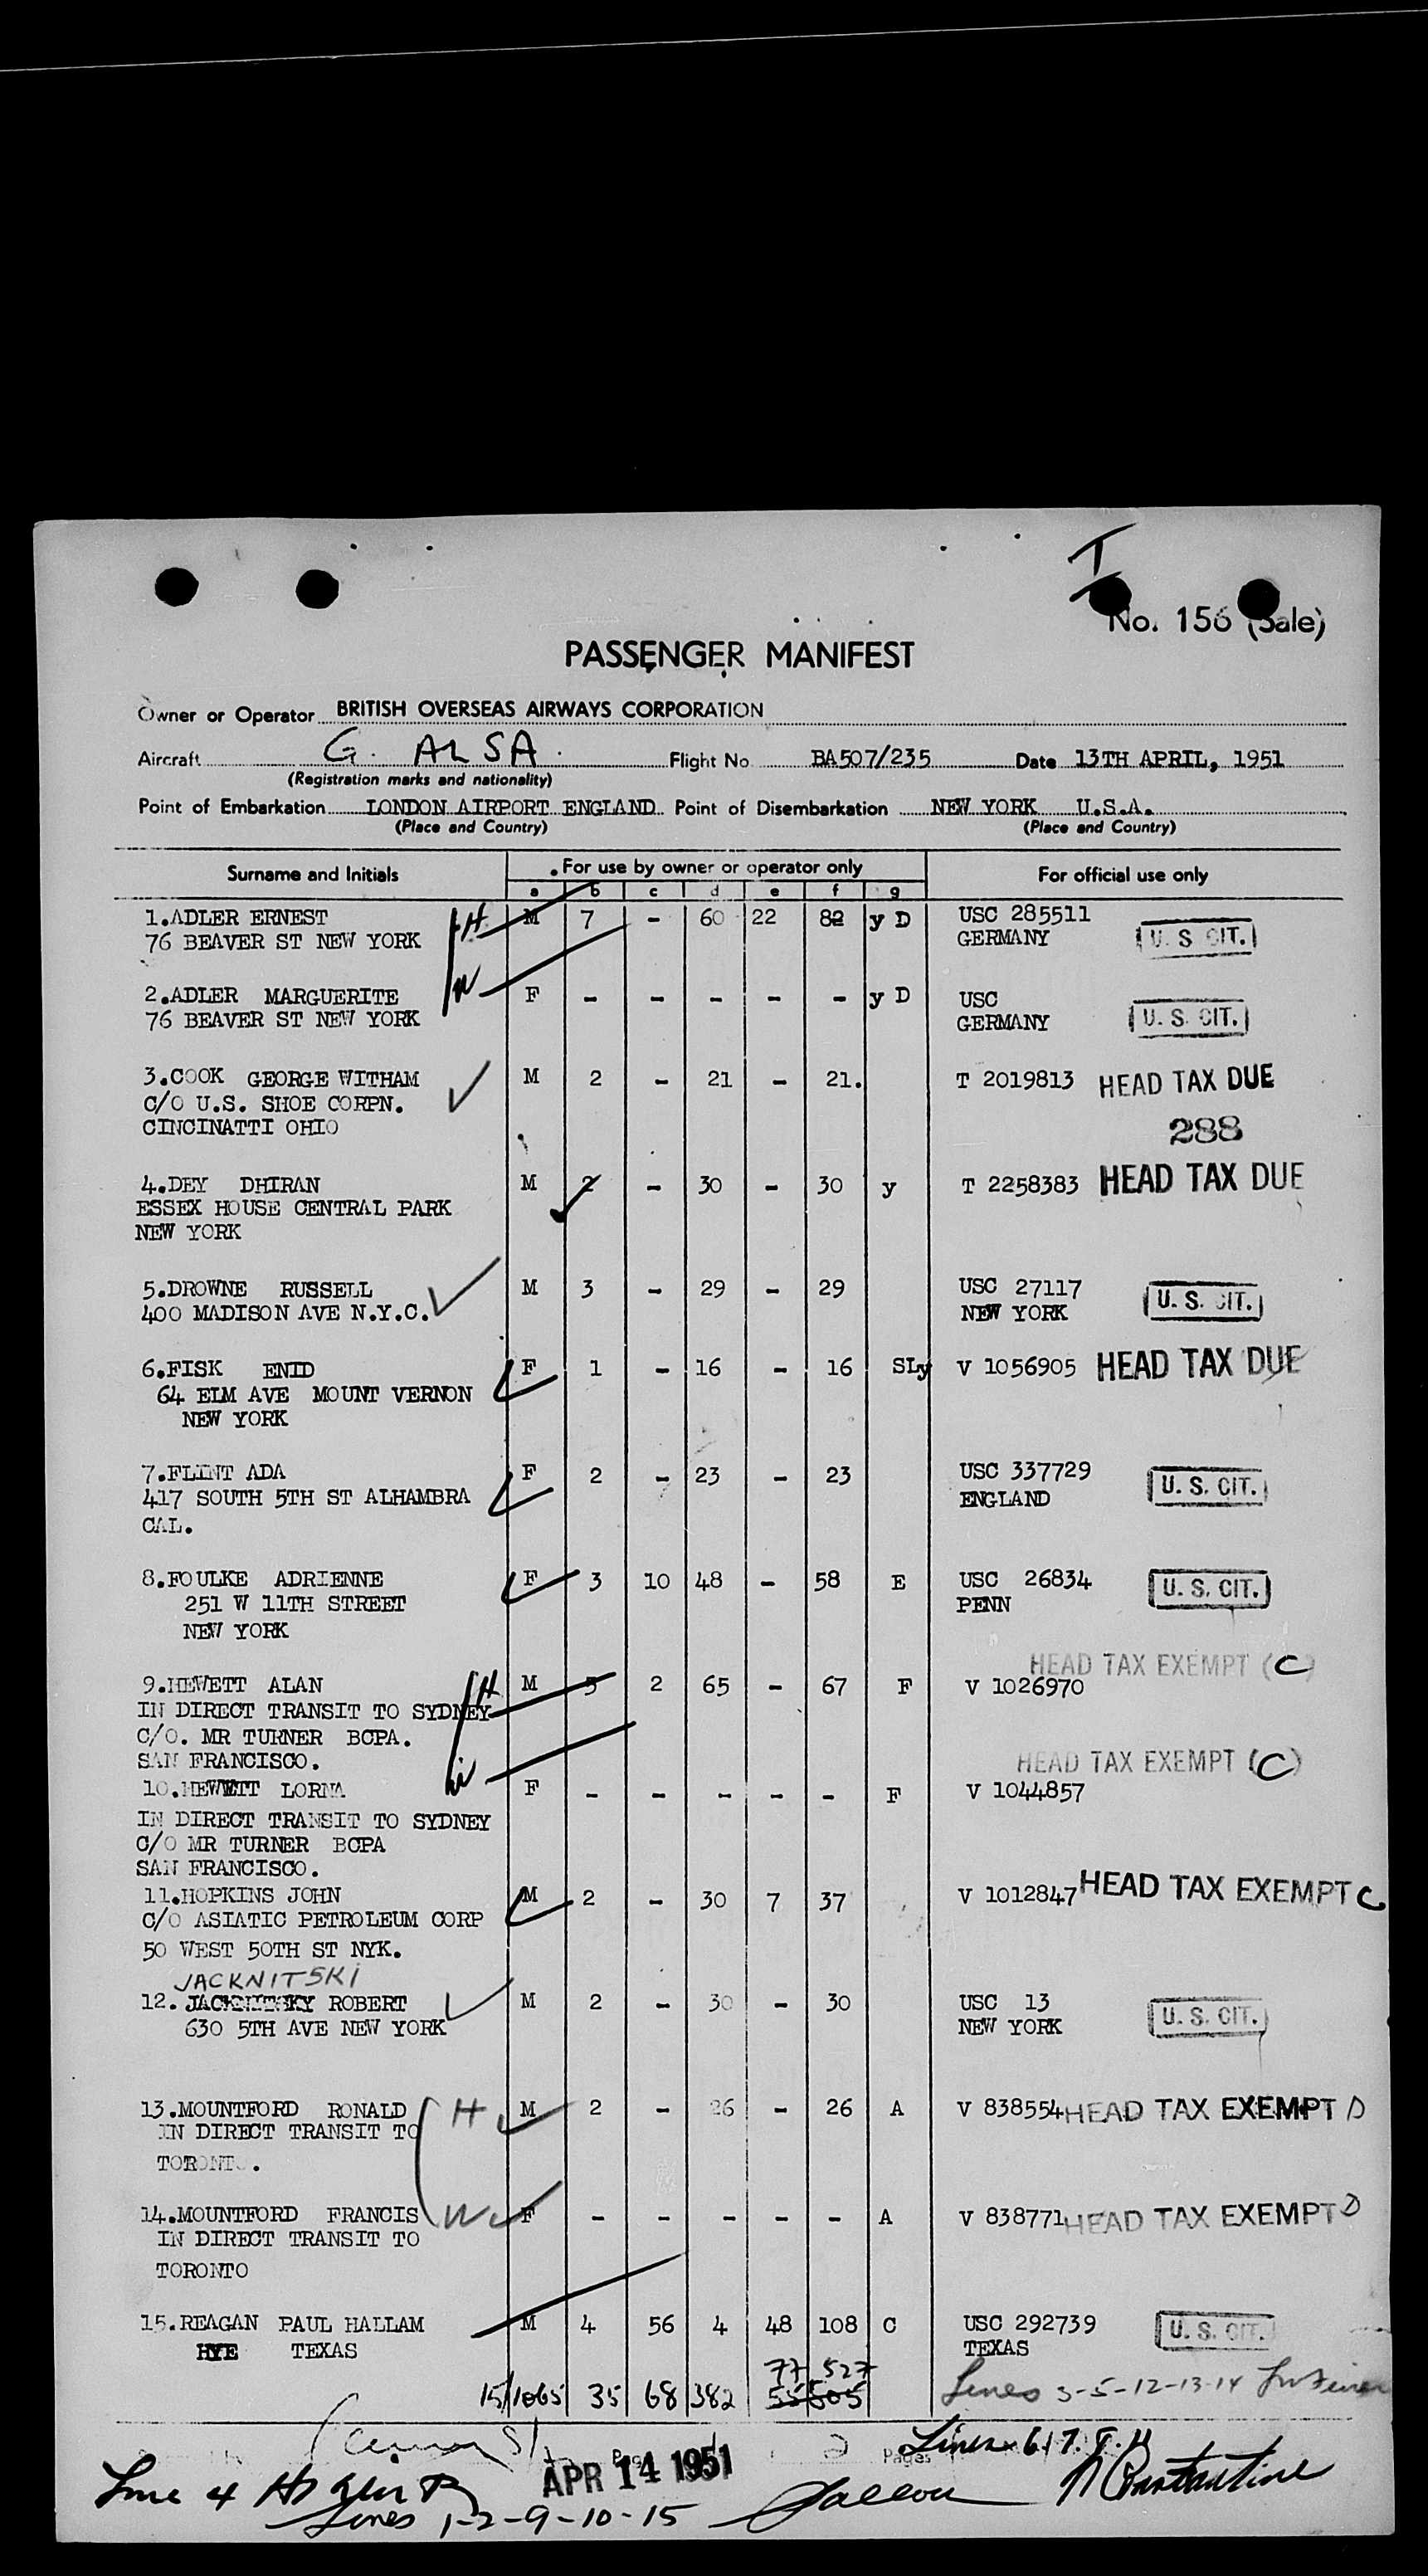 T
No. 156 (Sale)
PASSENGER MANIFEST
Owner or Operator BRITISH OVERSEAS AIRWAYS CORPORATION
Aircraft G. ALSA. Flight No BA507/235 Date 13TH APRIL, 1951
(Registration marks and nationality)
Point of Embarkation LONDON AIRPORT ENGLAND Point of Disembarkation NEW YORK U.S.A.
(Place and Country) (Place and Country)
Surname and Initials For use by owner or operator only For official use only
a b c d e f g
1.ADLER ERNEST H M 7 - 60 22 82 y D USC 285511
76 BEAVER ST NEW YORK GERMANY U. S CIT.
2.ADLER MARGUERITE W F - - - - - y D USC
76 BEAVER ST NEW YORK GERMANY U. S. CIT.
3.COOK GEORGE WITHAM M 2 - 21 - 21. T 2019813 HEAD TAX DUE
C/O U.S. SHOE CORPN.
CINCINATTI OHIO 288
4.DEY DHIRAN M 2 - 30 - 30 y T 2258383 HEAD TAX DUE
ESSEX HOUSE CENTRAL PARK
NEW YORK
5.DROWNE RUSSELL M 3 - 29 - 29 USC 27117
400 MADISON AVE N.Y.C. NEW YORK U. S. CIT.
6.FISK ENID F 1 - 16 - 16 SLy V 1056905 HEAD TAX DUE
64 ELM AVE MOUNT VERNON
NEW YORK
7.FLINT ADA F 2 - 23 - 23 USC 337729
417 SOUTH 5TH ST ALHAMBRA ENGLAND U. S. CIT.
CAL.
8.FOULKE ADRIENNE F 3 10 48 - 58 E USC 26834
251 W 11TH STREET PENN U. S. CIT.
NEW YORK
HEAD TAX EXEMPT (C)
9.HEWETT ALAN H M 5 2 65 - 67 F V 1026970
IN DIRECT TRANSIT TO SYDNEY
C/O. MR TURNER BCPA.
SAN FRANCISCO. HEAD TAX EXEMPT (C)
10.HEWETT LORNA W F - - - - - F V 1044857
IN DIRECT TRANSIT TO SYDNEY
C/O MR TURNER BCPA
SAN FRANCISCO.
11.HOPKINS JOHN M 2 - 30 7 37 V 1012847 HEAD TAX EXEMPT C
C/O ASIATIC PETROLEUM CORP
50 WEST 50TH ST NYK.
JACKNITSKI
12. JACKNITSKY ROBERT M 2 - 30 - 30 USC 13
630 5TH AVE NEW YORK NEW YORK U. S. CIT.
13.MOUNTFORD RONALD H M 2 - 26 - 26 A V 838554 HEAD TAX EXEMPT D
IN DIRECT TRANSIT TO
TORONTO.
14.MOUNTFORD FRANCIS W F - - - - - A V 838771 HEAD TAX EXEMPT D
IN DIRECT TRANSIT TO
TORONTO
15.REAGAN PAUL HALLAM M 4 56 4 48 108 C USC 292739
HYE TEXAS TEXAS U. S. CIT.
77 527
15/1065 35 68 382 55 505 Lines 3-5-12-13-14
Lines 6.17.8.11
APR 14 1951 2 Pages
Line 4
Lines 1-2-9-10-15